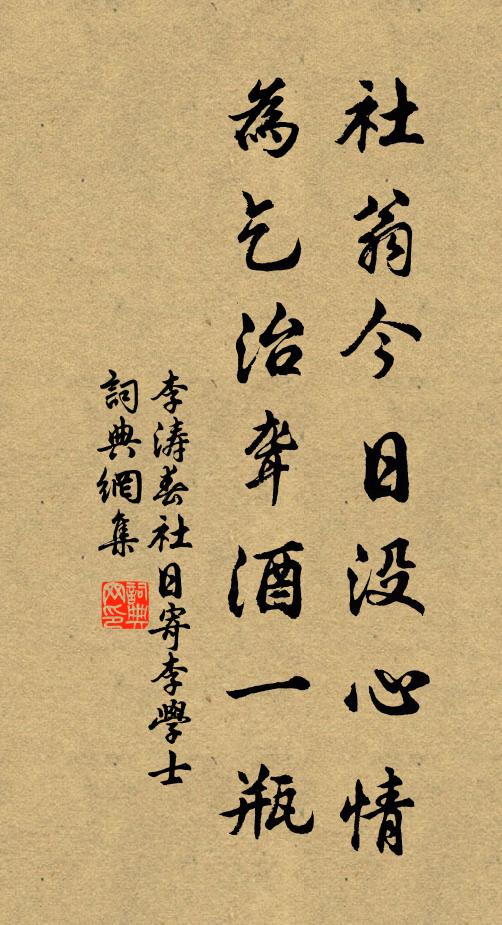 社翁今日没心情
為乞治聾酒一瓶
李濤春社日寄李學士
詞典網集
詞典網印